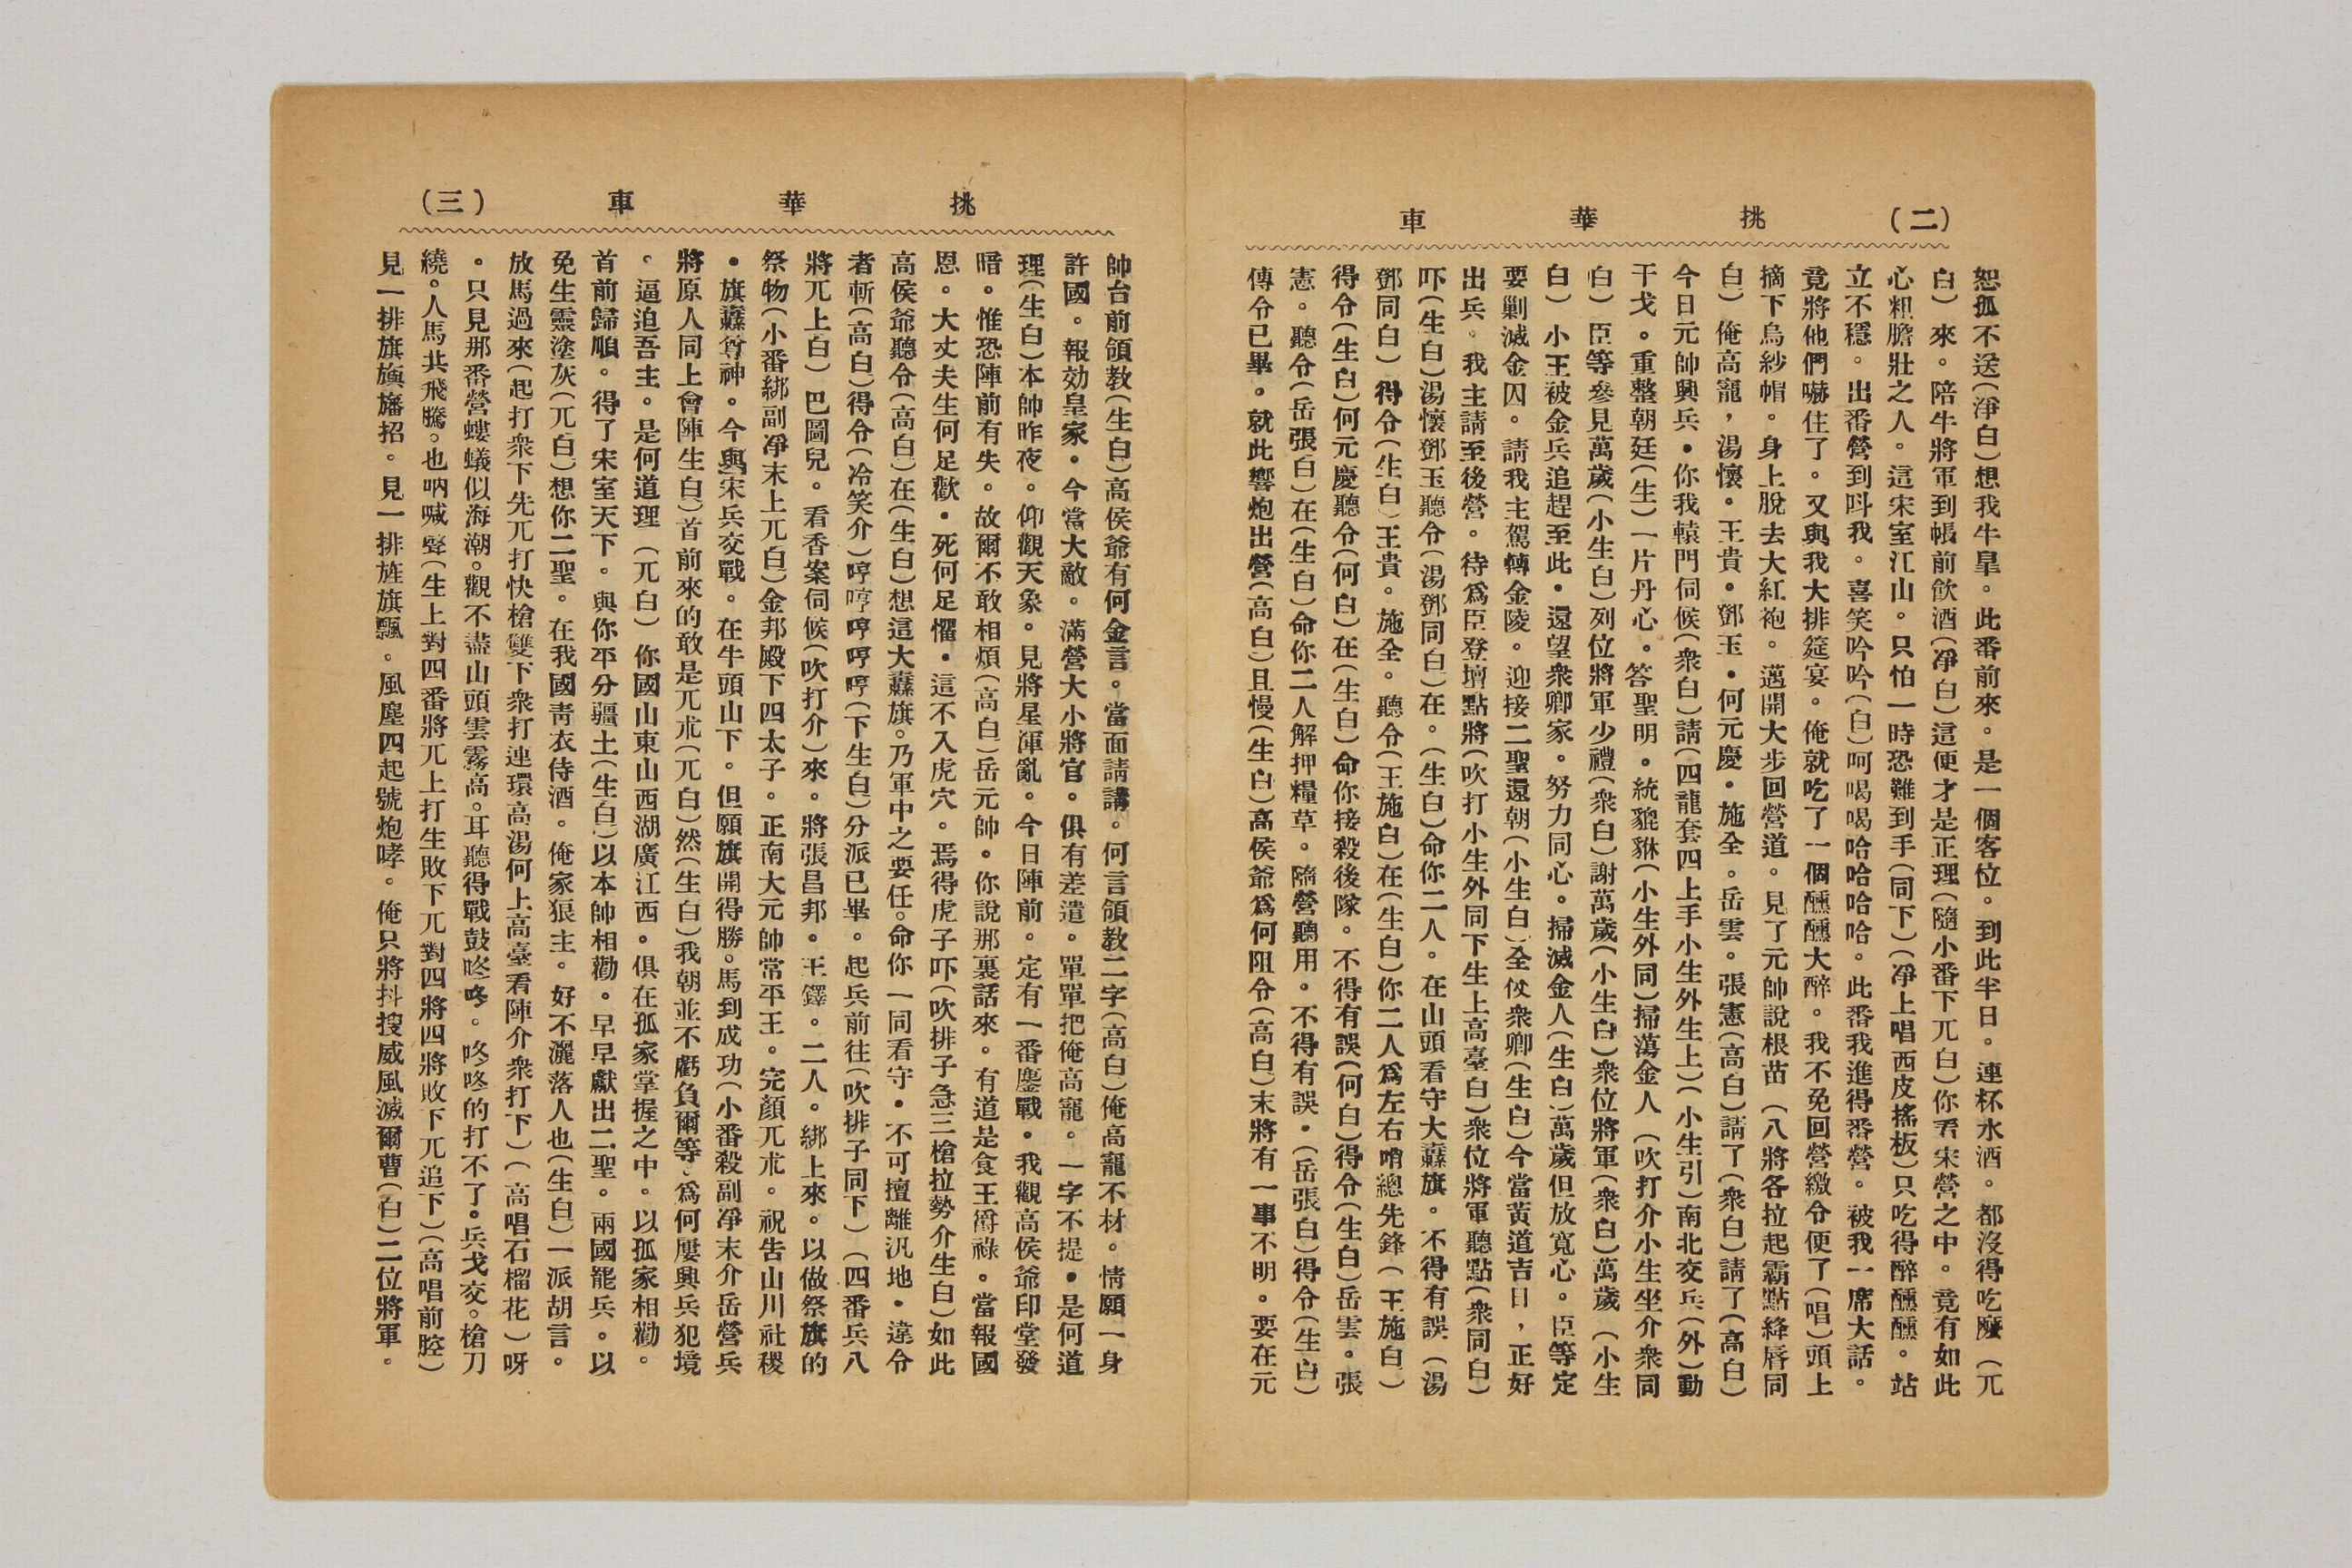 (二)　挑　華　車
恕孤不送(淨白)想我牛臯。此番前來。是一個客位。到此半日。連杯水酒。都沒得吃廢(兀
白)來。陪牛將軍到帳前飮酒(凈白)這便才是正理(隨小番下兀白)你看宋營之中。竟有如此
心粗膽壯之人。這宋室江山。只怕一時恐難到手(同下)(凈上唱西皮搖板)只吃得醉醺醺。站
立不穩。出番營到呌我。喜笑吟吟(白)呵喝喝哈哈哈哈。此番我進得番營。被我一席大話。
竟將他們嚇住了。又與我大排筵宴。俺就吃了一個醺醺大醉。我不免回營繳令便了(唱)頭上
摘下烏紗帽。身上脫去大紅袍。邁開大步回營道。見了元帥說根苗(八將各拉起霸點絳唇同
白)俺高寵，湯懷。王貴。鄧玉。何元慶。施全。岳雲。張憲(高白)請了(衆白)請了(高白)
今日元帥興兵。你我轅門伺候(衆白)請(四龍套四上手小生外生上)(小生引)南北交兵(外)動
干戈。重整朝廷(生)一片丹心。答聖明。統貔貅(小生外同)掃蕩金人(吹打介小生坐介衆同
白)臣等參見萬歲(小生白)列位將軍少禮(衆白)謝萬歲(小生白)衆位將軍(衆白)萬歲(小生
白)小王被金兵追趕至此。還望衆卿家。努力同心。掃滅金人(生白)萬歲但放寬心。臣等定
要剿滅金囚。請我主駕轉金陵。迎接二聖還朝(小生白)全仗衆卿(生白)今當黃道吉日，正好
出兵。我主請至後營。待爲臣登壇點將(吹打小生外同下生上高臺白)衆位將軍聽點(衆同白)
吓(生白)湯懷鄧玉聽令(湯鄧同白)在。(生白)命你二人。在山頭看守大纛旗。不得有誤(湯
鄧同白)得令(生白)王貴。施全。聽令(王施白)在(生白)你二人爲左右哨總先鋒(王施白)
得令(生白)何元慶聽令(何白)在(生白)命你接殺後隊。不得有誤(何白)得令(生白)岳雲。張
憲。聽令(岳張白)在(生白)命你二人解押糧草。隨營聽用。不得有誤。(岳張白)得令(生白)
傳令已畢。就此響炮出營(高白)且慢(生白)高侯爺爲何阻令(高白)末將有一事不明。要在元
挑　華　車　(三)
帥台前領教(生白)高侯爺有何金言。當面請講。何言領教二字(高白)俺高寵不材。情願一身
許國。報効皇家。今當大敵。滿營大小將官。俱有差遣。單單把俺高寵。一字不提。是何道
理(生白)本帥昨夜。仰觀天象。見將星渾亂。今日陣前。定有一番鏖戰。我觀高侯爺印堂發
暗。惟恐陣前有失。故爾不敢相煩(高白)岳元帥。你說那裏話來。有道是食王爵祿。當報國
恩。大丈夫生何足歡。死何足懼。這不入虎穴。焉得虎子吓(吹排子急三槍拉勢介生白)如此
高侯爺聽令(高白)在(生白)想這大纛旗。乃軍中之要任。命你一同看守。不可擅離汎地。違令
者斬(高白)得令(冷笑介)哼哼哼哼哼(下生白)分派已畢。起兵前往(吹排子同下)(四番兵八
將兀上白)巴圖兒。看香案伺候(吹打介)來。將張昌邦。王鐸。二人。綁上來。以做祭旗的
祭物(小番綁副凈末上兀白)金邦殿下四太子。正南大元帥常平王。完顏兀朮。祝告山川社稷
。旗纛尊神。今與宋兵交戰。在牛頭山下。但願旗開得勝。馬到成功(小番殺副凈末介岳營兵
將原人同上會陣生白)首前來的敢是兀朮(兀白)然(生白)我朝並不虧負爾等。爲何屢興兵犯境
。逼迫吾主。是何道理(兀白)你國山東山西湖廣江西。俱在孤家掌握之中。以孤家相勸。
首前歸順。得了宋室天下。與你平分疆土(生白)以本帥相勸。早早獻出二聖。兩國罷兵。以
免生靈塗灰(兀白)想你二聖。在我國靑衣侍酒。俺家狠主。好不灑落人也(生白)一派胡言。
放馬過來(起打衆下先兀打快槍雙下衆打連環高湯何上高臺看陣介衆打下)(高唱石榴花)呀
。只見那番營螻蟻似海潮。觀不盡山頭雲霧高。耳聽得戰鼓咚咚。咚咚的打不了。兵戈交。槍刀
繞。人馬共飛騰。也吶喊聲(生上對四番將兀上打生敗下兀對四將四將敗下兀追下)(高唱前腔)
見一排旗旟旛招。見一排旌旗飄。風塵四起號炮哮。俺只將抖搜威風滅爾曹(白)二位將軍。